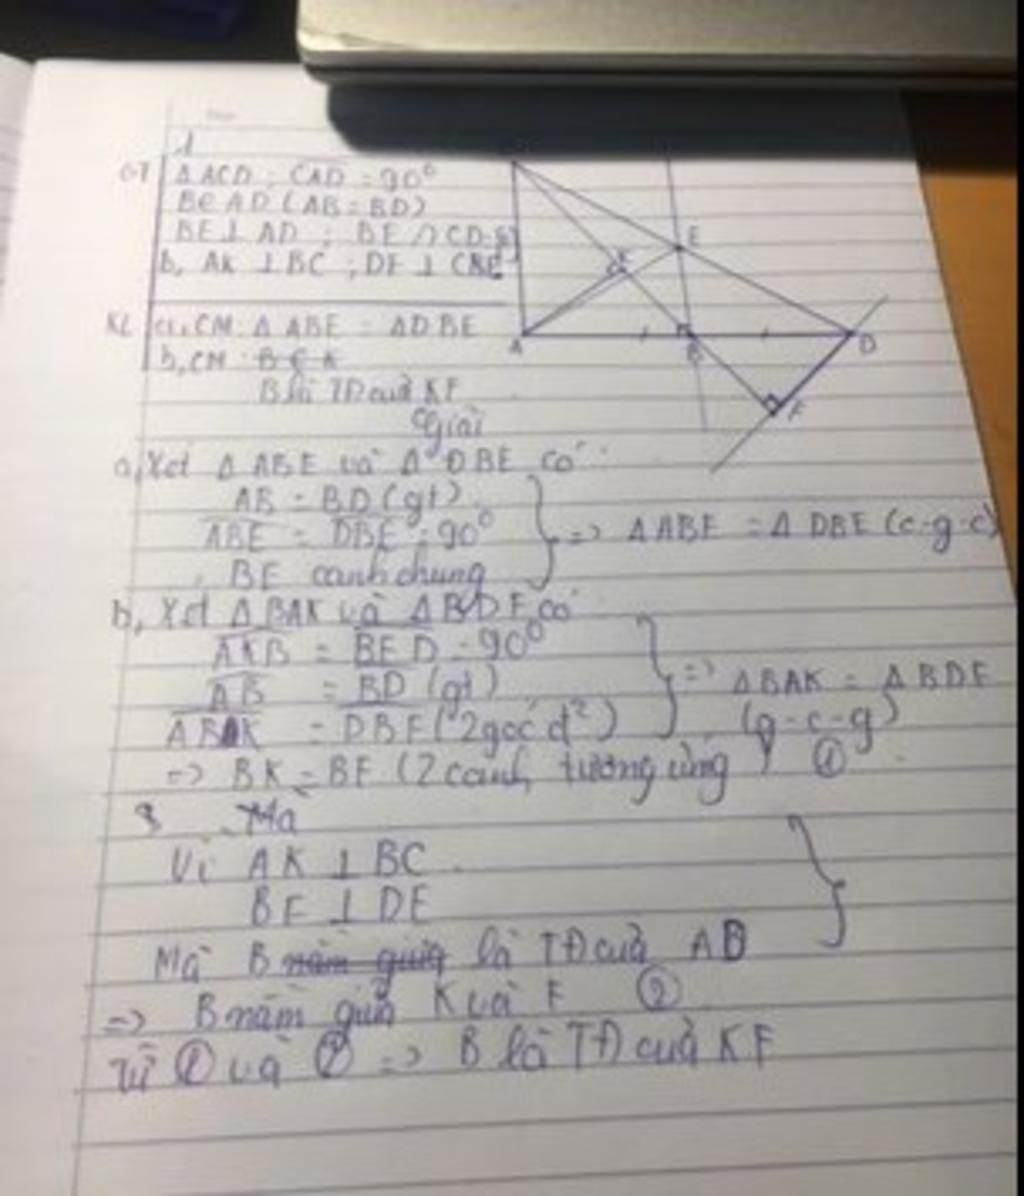 1
GT ΔACD ; CAD = 90°
B∈AD (AB = BD)
BE⊥AD ; BE∩CD
b, AK ⊥BC ; DF⊥
KL a, CM: ΔABE = ΔDBE
b, CM: B∈K
B là TĐ của KF
Giải
a, Xét ΔABE và ΔDBE có:
AB = BD (gt)
ABE = DBE = 90°
BE cạnh chung
=> ΔABE = ΔDBE (c-g-c)
b, Xét ΔBAK và ΔBDF có
AKB = BED = 90°
AB = BD (gt)
ABK = DBF (2 góc đ²)
=> ΔBAK = ΔBDF
(g-c-g)
=> BK = BF (2 cạnh tương ứng) ①
Mà
Vì AK ⊥ BC
BF ⊥ DE
Mà B nằm giữa là TĐ của AD
=> B nằm giữa K và F ②
Từ ① và ② => B là TĐ của KF
E
K
A
B
D
F